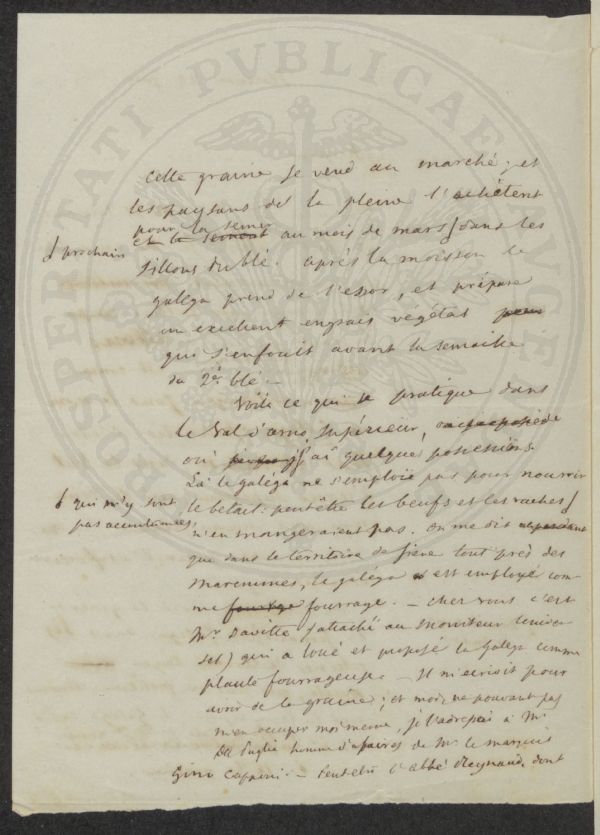 Cette graine se vend au marché; et
les paysans de la pleine l'achètent
pour la semer
et la sement au mois de mars dans les
prochain
sillons du blé. après la moisson le
galéga prend de l'essor, et prépare
un excellent engrais végétal
qui s'enfouit avant la semaille
du 2e blé. —
Voilà ce qui se pratique dans
le Val d'arno Supérieur,
où j'ai quelques possessions.
Là le galéga ne s'emploie pas pour nourrir
le bétail: peutêtre les bœufs et les vaches
qui n'y sont
pas accoutumées,
n'en mangeraient pas. On me dit cependant
que dans le territoire de Siène tout près des
Maremmes, le galéga est employé com-
me fourrage fourrage. — Cher vous c'est
Mr. (attaché au Moniteur Univer
sel) qui a loué et proposé le Galega comme
plante fourrageuse. — Il m'ecrivit pour
avoir de la graine; et moi, ne pouvant pas
m'en occuper moi même, je l'adressai à Mr.
homme d'afaires de Mr. le marquis
Gino Capponi. — Peutetre l'abbé Reynaud, dont